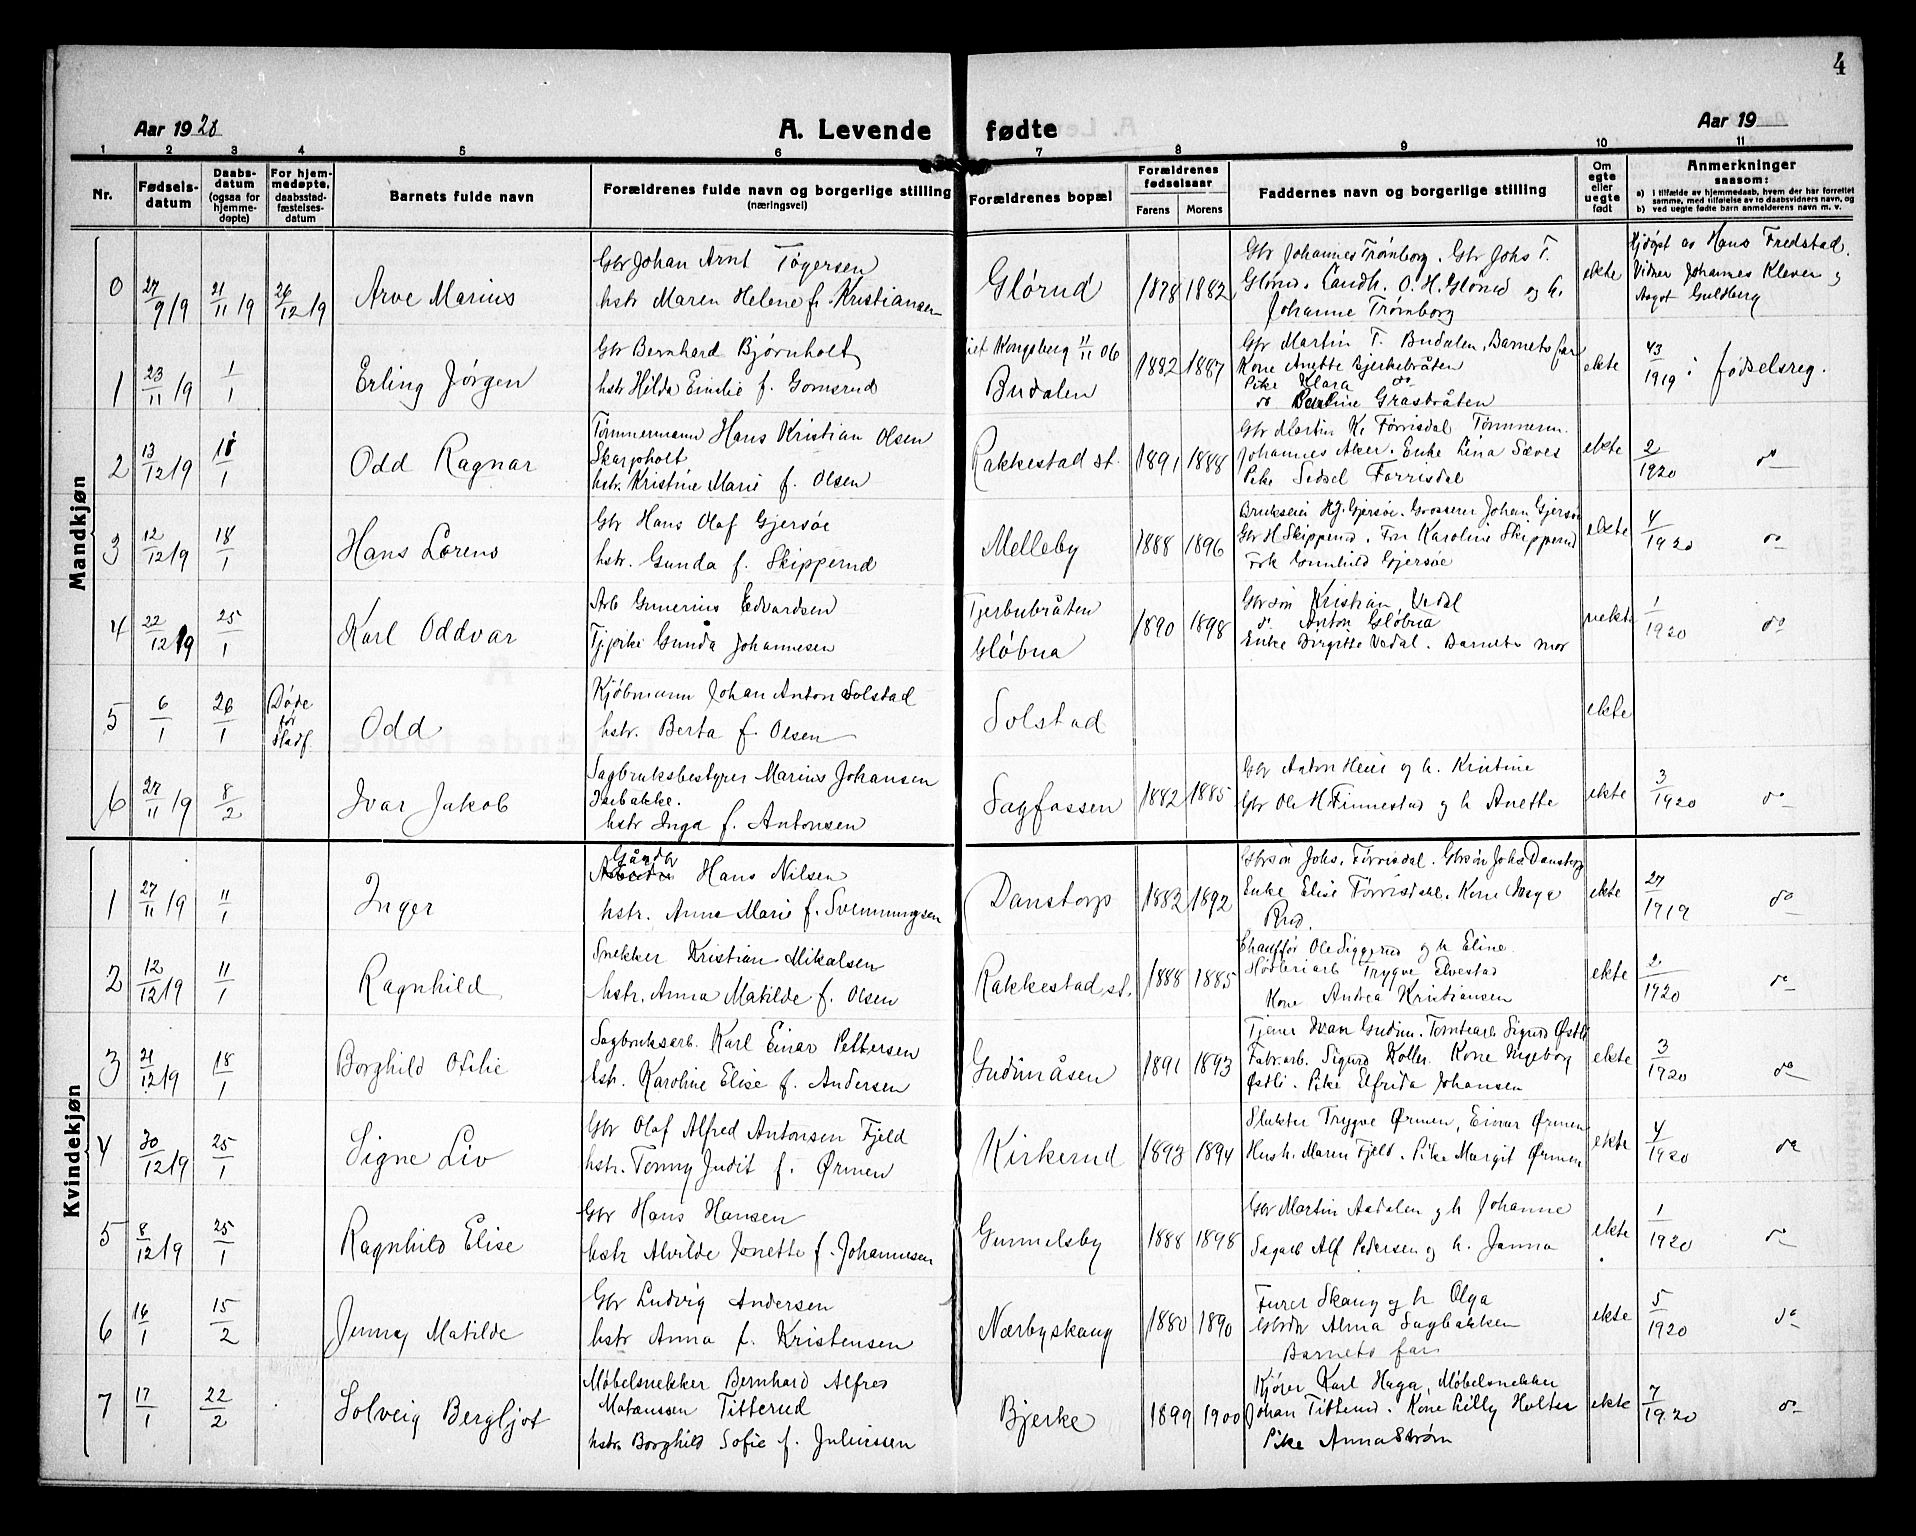 4
Aar 1920
A. Levende fødte
Aar 19
1 2 3 4 5 6 7 8 9 10 11
Nr.
Fødselsdatum
Daabsdatum (ogsaa for hjemmedøpte)
For hjemmedøpte, daabsstadfæstelsesdatum
Barnets fulde navn
Forældrenes fulde navn og borgerlige stilling (næringsvei)
Forældrenes bopæl
Forældrenes fødselsaar
Farens Morens
Faddernes navn og borgerlige stilling
Om egte eller uegte født
Anmerkninger saasom:
a) i tilfælde av hjemmedaab, hvem der har forrettet samme, med tilføielse av to daabsvidners navn, og
b) ved uegte fødte barn anmelderens navn m. v.
Mandkjøn
0 27/9 19 21/11 19 26/12 19 Arve Marius
Gbr Johan Arnt Tøgersen
hstr Maren Helene f. Kristiansen
Glørud 1878 1882
Gbr Johannes Trømborg. Gbr Johs T.
Glørud. Landh. O. H. Glørud og h.
Johanne Trømborg
ekte
Hjdøpt av Hans Fredstad.
Vidner Johannes Klever og
Aagot Guldberg
1 23/11 19 1/1 Erling Jørgen
Gbr Bernhard Bjørnholt
hstr Hilda Emilie f. Gomsrud
viet Kongsberg 11/11 06
Budalen 1882 1887
Gbr Martin T. Budalen, Barnets far
Kone Anette Bjerkebråten
Pike Klara do
do Pauline Grasbråten
ekte 43/1919 i fødselsreg.
2 13/12 19 18/1 Odd Ragnar
Tømmermann Hans Kristian Olsen
Skarpholt
hstr. Kristine Marie f. Olsen
Rakkestad st. 1891 1888
Gbr Martin K. Førrisdal Tømmerm.
Johannes Aker. Enke Lina Sæves
Pike Sedsel Førrisdal
ekte 2/1920 do
3 12/12 19 18/1 Hans Lorens
Gbr Hans Olaf Gjersøe
hstr. Gunda f. Skipperud
Melleby 1888 1896
Brukseier Hj. Gjersøe. Grosserer Johan Gjersøe
Gbr H Skipperud. Fru Karoline Skipperud
Frk Gunhild Gjersøe
ekte 4/1920 do
4 22/12 19 25/1 Karl Oddvar
Arb Gunerius Edvardsen
Tj.pike Gunda Johannesen
Tjerbubråten
Gløbua 1890 1898
Gbrsøn Kristian Vedal
do Anton Gløbua
Enke Birgitte Vedal. Barnets mor
uekte 1/1920 do
5 6/1 26/1 Døde før stadf. Odd
Kjøbmann Johan Anton Solstad
hstr. Berta f. Olsen
Solstad
ekte
6 27/11 19 8/2 Ivar Jakob
Sagbruksbestyrer Marius Johansen
Isebakke.
hstr Inga f. Antonsen
Sagfossen 1882 1885
Gbr Anton Heier og h. Kristine
Gbr Ole H. Finnestad og h Anette
ekte 3/1920 do
Kvindekjøn
1 27/11 19 11/1 Inger
Gårdbr Hans Nilsen
hstr. Anna Marie f. Svenningsen
Danstorp 1883 1892
Gbrsøn Johs. Førrisdal. Gbrsøn Johs Danstorp
Enke Elise Førrisdahl. Kone Inga
Rud.
ekte 27/1919 do
2 12/12 19 11/1 Ragnhild
Snekker Kristian Mikalsen
hstr. Anna Matilde f. Olsen
Rakkestad st. 1888 1885
Chauffør Ole Siggerud og h Eline
Trygve Elvestad
Kone Andrea Kristiansen
ekte 2/1920 do
3 21/12 19 18/1 Borghild Otilie
Sagbruksarb. Karl Einar Pettersen
hstr. Karoline Elise f. Andersen
Gudimåsen 1891 1893
Tjener Ivar Gudim. Tomtearb Sigurd Østli
Fabr.arb. Sigurd Koller. Kone Ingeborg
Østli. Pike Elfrida Johansen
ekte 3/1920 do
4 30/12 19 25/1 Signe Liv
Gbr Olaf Alfred Antonsen Fjeld
hstr. Tonny Judit f. Ørmen
Kirkerud 1893 1894
Slakter Trygve Ørmen, Einar Ørmen
Hustr. Maren Fjeld. Pike Margit Ørmen
ekte 4/1920 do
5 8/12 19 25/1 Ragnhild Elise
Gbr Hans Hansen
hstr Alvilde Jonette f. Johannesen
Gunnelsby 1888 1898
Gbr Martin Aadalen og h Johanne
Sagarb Alf Pedersen og h. Janna
ekte 1/1920 do
6 16/1 15/2 Jenny Matilde
Gbr Ludvig Andersen
hstr Anna f. Kristensen
Nærbyskaug 1880 1890
Furer Skaug og h Olga
Gbrdr Alma Sagbakken
Barnets far
ekte 5/1920 do
7 17/1 22/2 Solveig Bergljot
Møbelsnekker Bernhard Alfred
Matanssen Titterud
hstr. Borghild Sofie f. Juliussen
Bjerke 1899 1900
Kjører Karl Haga, Møbelsnekker
Johan Titterud. Kone Lilly Holter
Pike Anna Strøm
ekte 7/1920 do